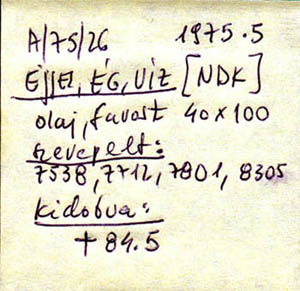 A/75/26 1975.5
Éjjel, ég, víz [NDK]
olaj, farost 40x100
szerepelt:
7538, 7712, 7801, 8305
kidobva:
+ 84.5